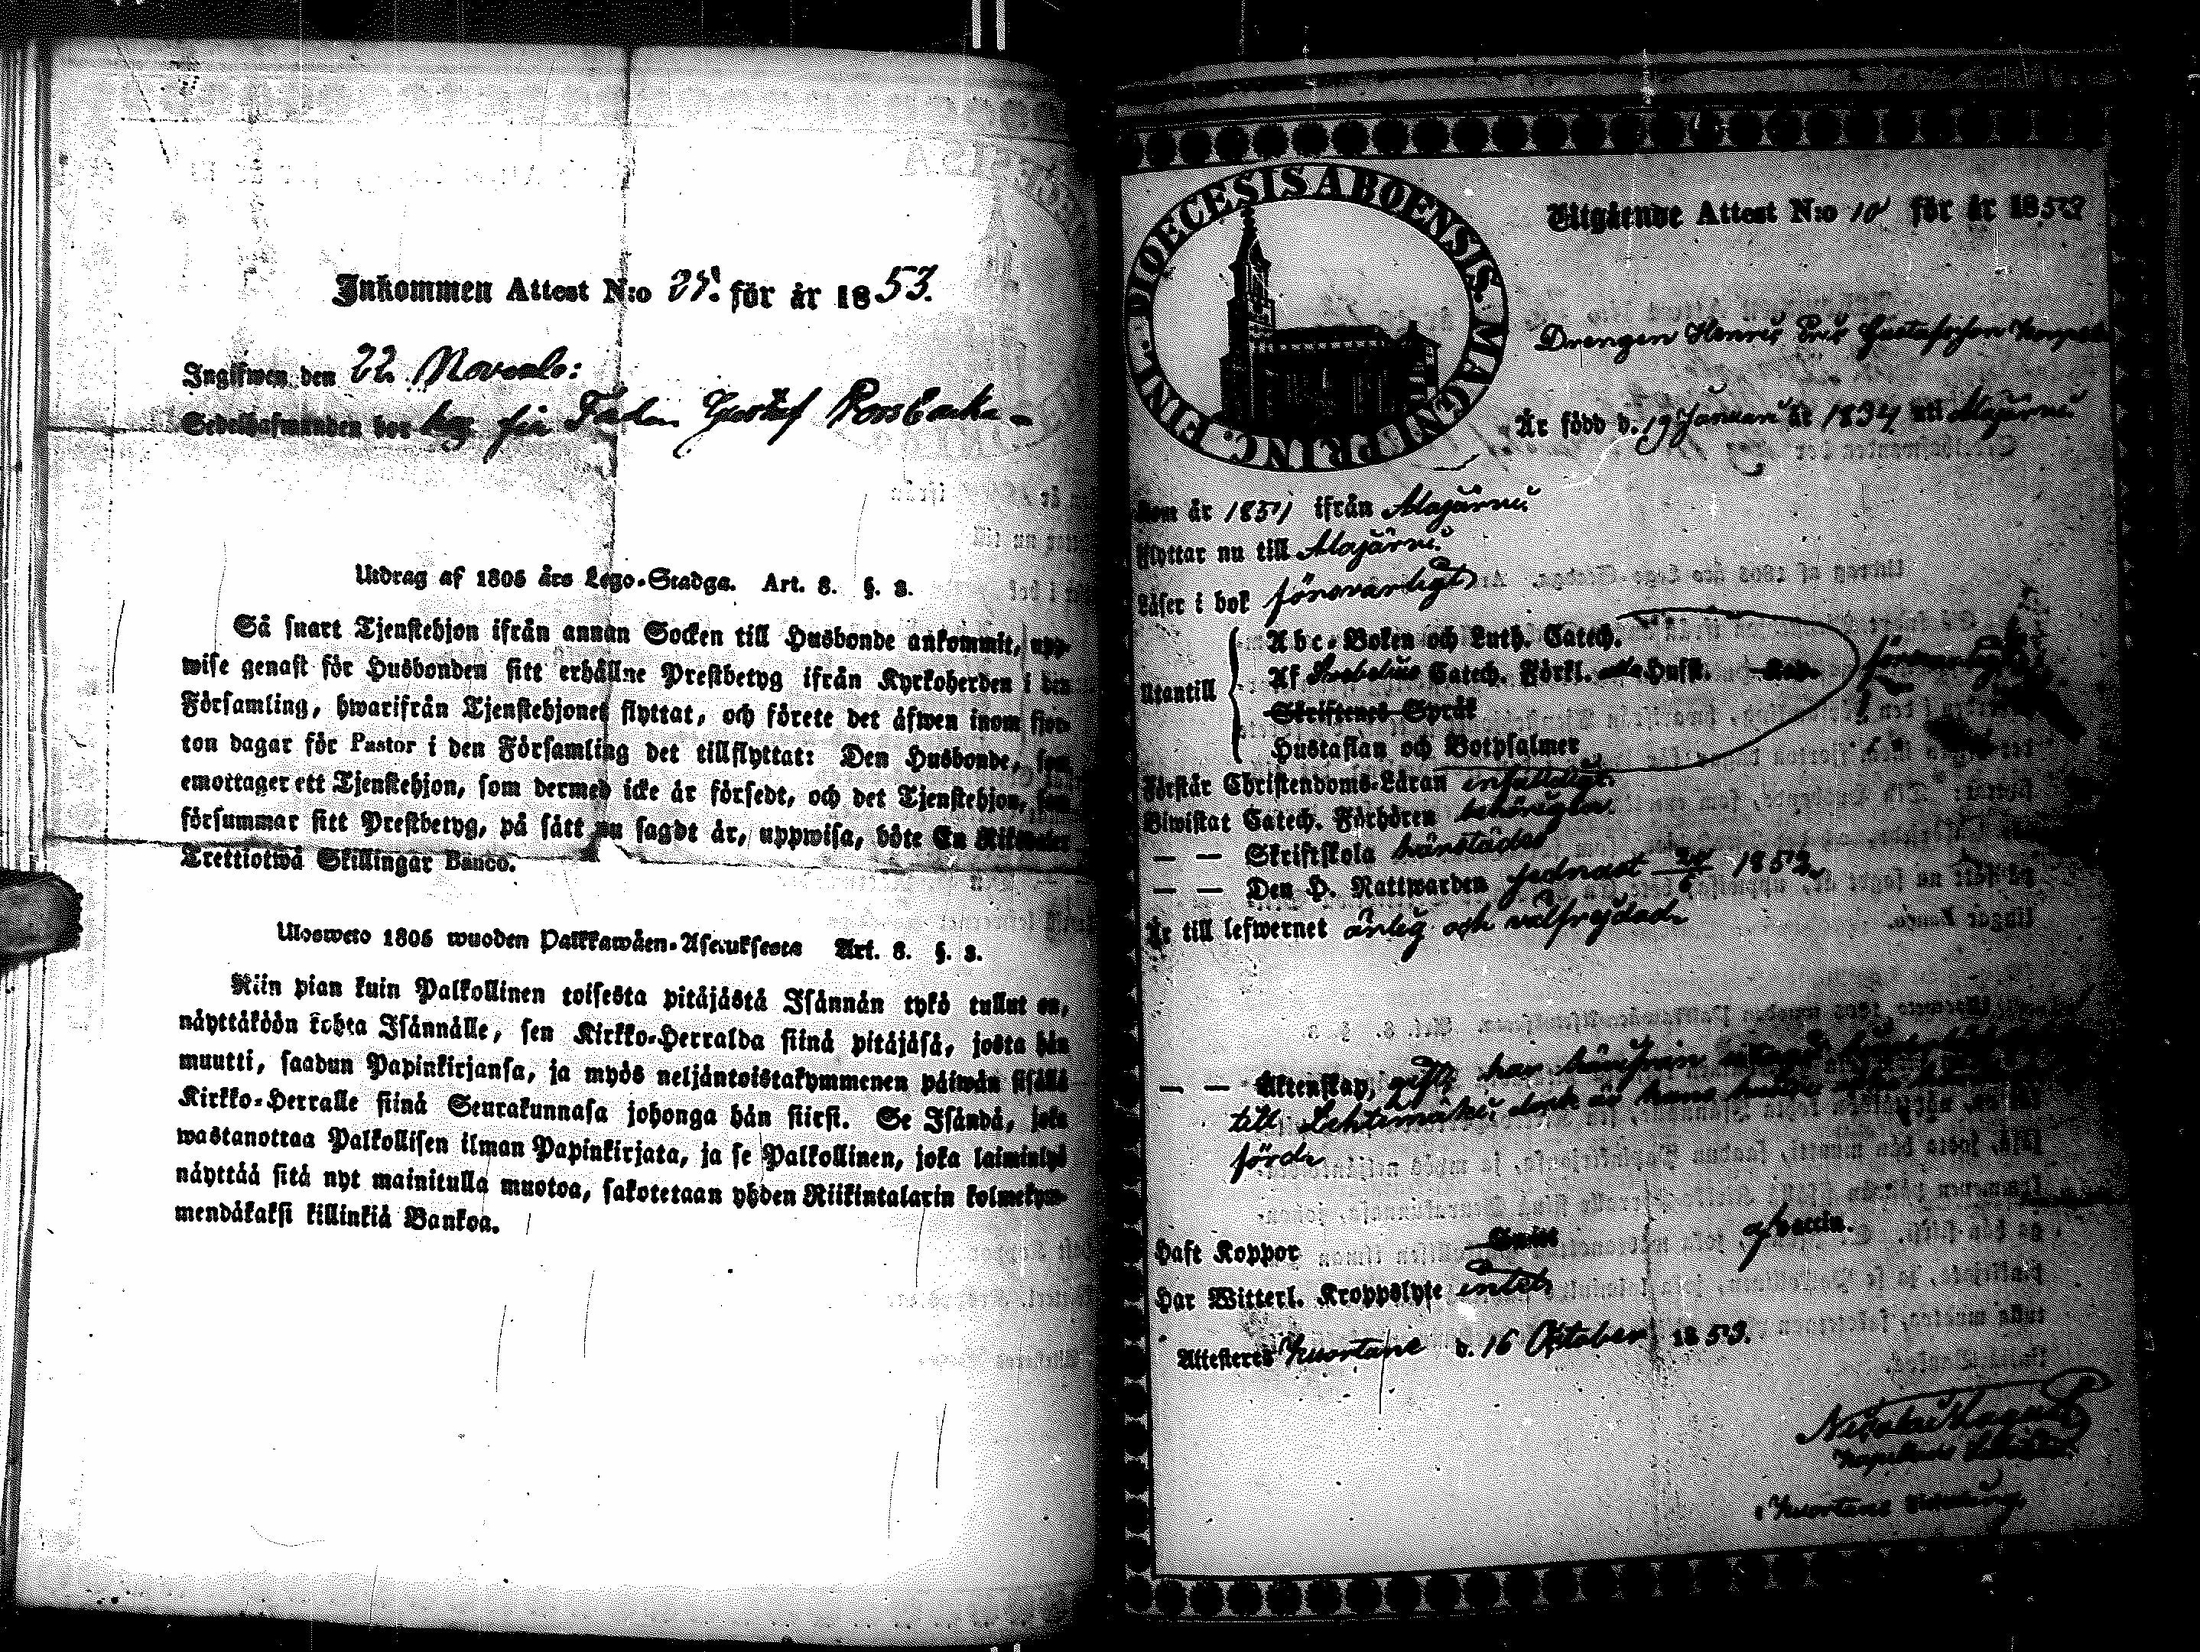 Inkommen Attest N:o 27. för år 1853.
Ingifwen den 22 Novemb:
Sedelhafwanden bor hos sin Fader Gustaf Rossbacka
Utdrag af 1805 års Lego-Stadga. Art. 8. §. 3.
Så snart Tjenstehjon ifrån annan Socken till Husbonde ankommit, upp-
wise genast för Husbonden sitt erhållne Prestbetyg ifrån Kyrkoherden i den
Församling, hwarifrån Tjenstehjonet flyttat, och förete det äfwen inom fjor-
ton dagar för Pastor i den Församling det tillflyttat: Den Husbonde, som
emottager ett Tjenstehjon, som dermed icke är försedt, och det Tjenstehjon, som
försummar sitt Prestbetyg, på sätt nu sagdt är, uppwisa, böte En Riksdaler
Trettiotwå Skillingar Banco.
Ulosweto 1805 wuoden Palkkawäen-Asetuksesta Art. 8. §. 3.
Niin pian kuin Palkollinen toisesta pitäjästä Isännän tykö tullut on,
näyttäköön kohta Isännälle, sen Kirkko-Herralda siinä pitäjäsä, josta hän
muutti, saadun Papinkirjansa, ja myös neljäntoistakymmenen päiwän sisällä
Kirkko-Herralle siinä Seurakunnasa johonga hän siirsi. Se Isändä, joka
wastanottaa Palkollisen ilman Papinkirjata, ja se Palkollinen, joka laiminlyö
näyttää sitä nyt mainitulla muotoa, sakotetaan yhden Riikintalarin kolmekym-
mendäkaksi killinkiä Bankoa.
DIOECESIS ABOENSIS. MAGNI PRINC. FINL.
Utgående Attest N:o 10 för år 1853
Drengen Henric Eric Gustafsson
Är född d. 19 Januari år 1834 uti Alajärvi
Kom år 1851 ifrån Alajärvi
Flyttar nu till Alajärvi
Läser i bok försvarligt
Utantill
Abc-Boken och Luth. Catech.
Af Svebelius Catech. Förkl. Husk.
Skriftenes Språk
Hustaflan och Botpsalmer
försvarligt
Förstår Christendoms-Läran enfaldigt.
Biwistat Catech. Förhören behörigen.
— — Skriftskola härstädes
— — Den H. Nattwarden sednast 1852.
Är till lefwernet ärlig och välfrejdad
— — Äktenskap, har härifrån
till Lehtimäki, dock är hans
förd.
Haft Koppor vaccin.
Har Witterl. Kroppslyte intet
Attesteres Kuortane d. 16 Oktober 1853.